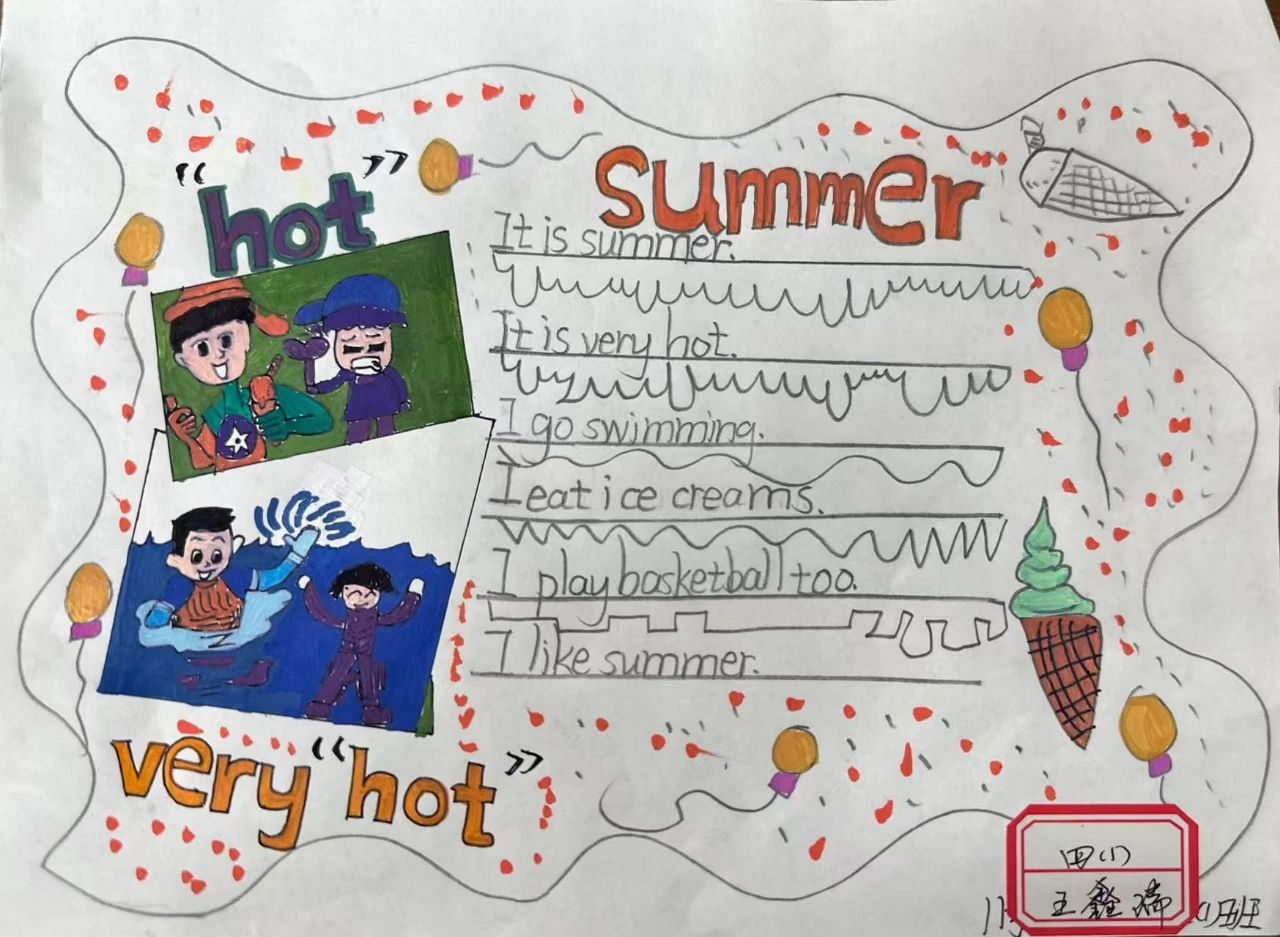 "hot"
summer
It is summer.
It is very hot.
I go swimming.
I eat ice creams.
I play basketball too.
I like summer.
very "hot"
四(1)
王鑫瑞
班